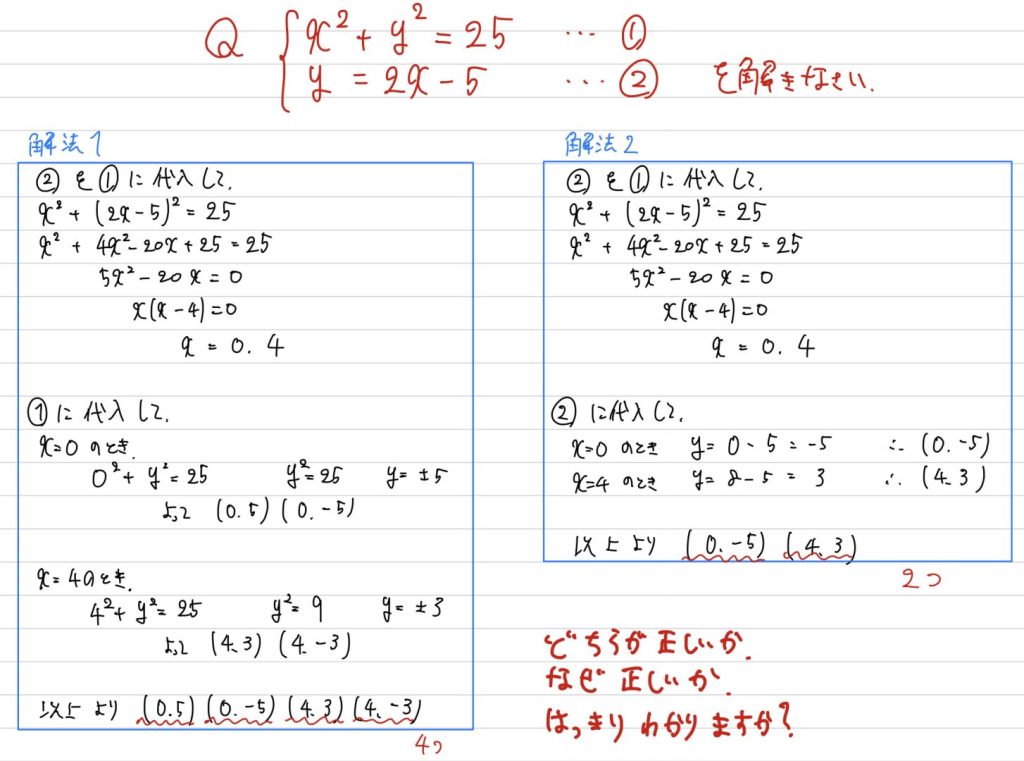 Q { x² + y² = 25 … ①
y = 2x - 5 … ② を解きなさい.
解法1
② を ① に代入して.
x² + (2x-5)² = 25
x² + 4x² - 20x + 25 = 25
5x² - 20x = 0
x(x-4)=0
x = 0. 4
① に代入して.
x=0 のとき.
0² + y² = 25 y² = 25 y = ±5
よって (0.5) (0.-5)
x=4のとき.
4² + y² = 25 y² = 9 y = ±3
よって (4.3) (4.-3)
以上より (0.5) (0.-5) (4.3) (4.-3)
4つ
解法2
② を ① に代入して.
x² + (2x-5)² = 25
x² + 4x² - 20x + 25 = 25
5x² - 20x = 0
x(x-4)=0
x = 0. 4
② に代入して.
x=0 のとき y = 0 - 5 = -5 ∴ (0.-5)
x=4 のとき y = 8 - 5 = 3 ∴ (4.3)
以上より (0.-5) (4.3)
2つ
どちらが正しいか.
なぜ正しいか.
はっきりわかりますか?